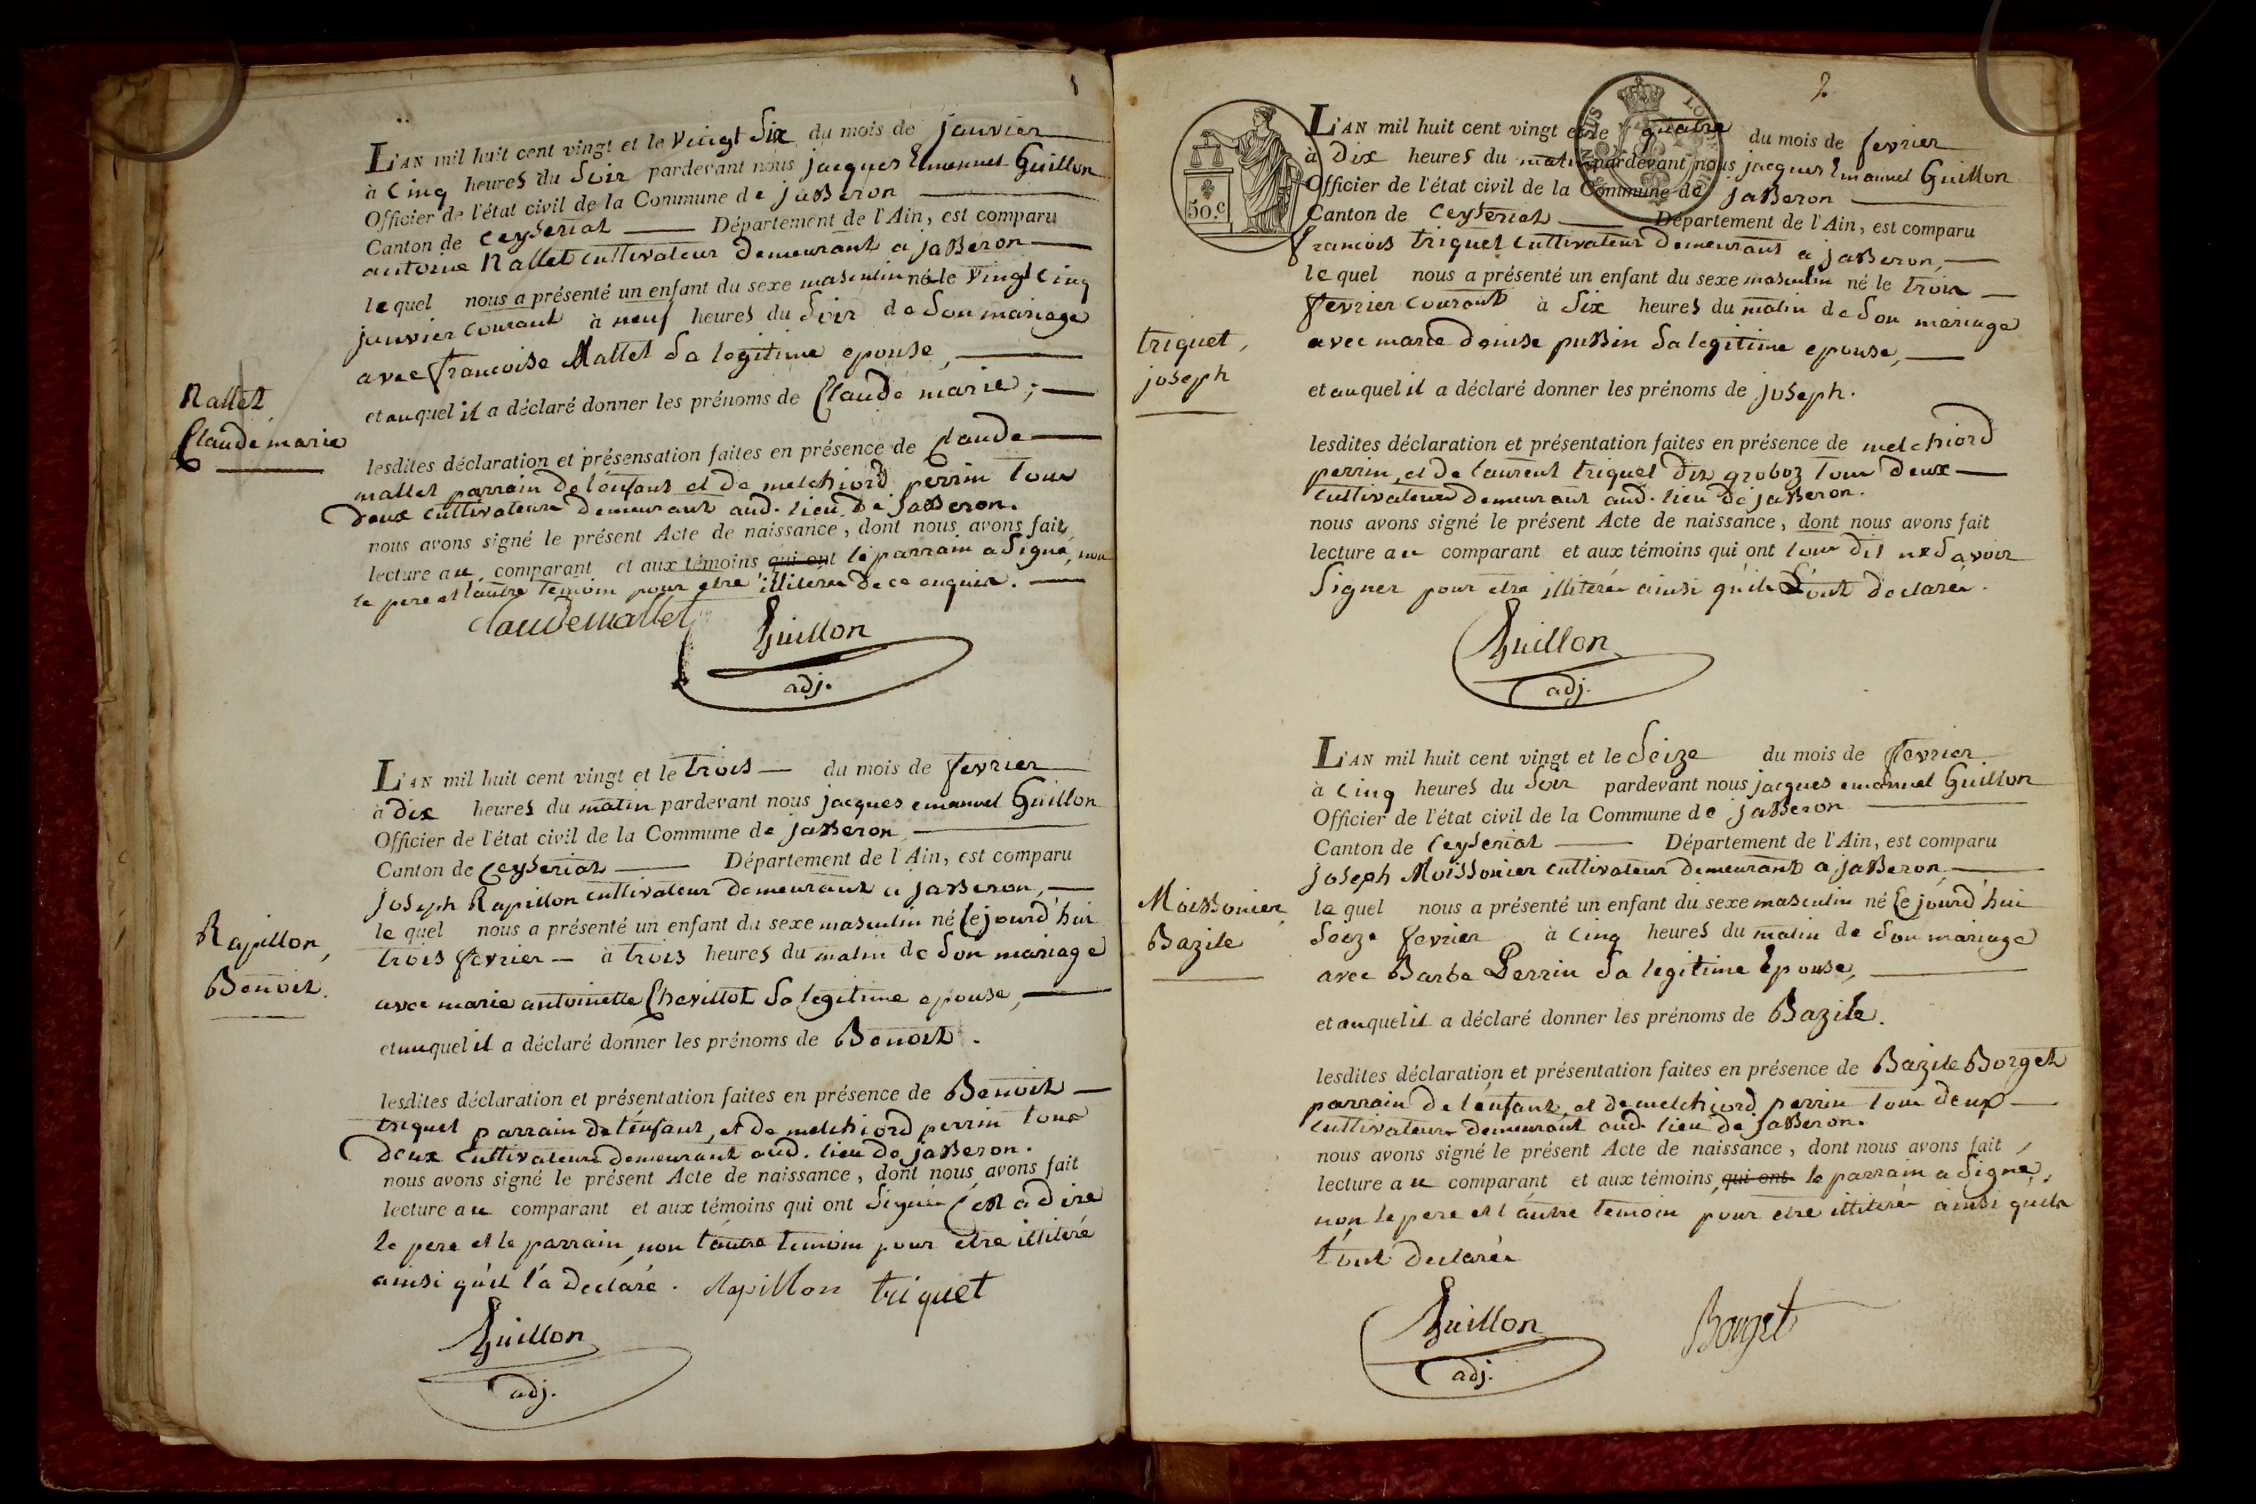 L'AN mil huit cent vingt et le vingt Six du mois de janvier
à Cinq heures du Soir pardevant nous jacques Emanuel Guillon
Officier de l'état civil de la Commune de jasseron
Canton de Ceyseriat Département de l'Ain, est comparu
antoine Nallet cultivateur demeurant a jasseron
lequel nous a présenté un enfant du sexe masculin né le vingt Cinq
janvier courant à neuf heures du Soir de Son mariage
avec francoise Mallet Sa legitime epouse,
et auquel il a déclaré donner les prénoms de Claude marie,
Nallet
Claude marie
lesdites déclaration et présensation faites en présence de Claude
mallet parrain de l'enfant et de melchiord perrin tous
deux cultivateurs demeurant aud. lieu de jasseron.
nous avons signé le présent Acte de naissance, dont nous avons fait
lecture au comparant et aux témoins qui ont le parrain a Signé, non
le pere et l'autre temoin pour etre illiteré de ce enquis.
Claude mallet
Guillon
adj.
L'AN mil huit cent vingt et le trois du mois de fevrier
à dix heures du matin pardevant nous jacques emanuel Guillon
Officier de l'état civil de la Commune de jasseron
Canton de Ceyseriat Département de l'Ain, est comparu
joseph Rapillon cultivateur demeurant a jasseron,
le quel nous a présenté un enfant du sexe masculin né Cejourd'hui
trois fevrier à trois heures du matin de Son mariage
avec marie antoinette Chevillot Sa legitime epouse,
et auquel il a déclaré donner les prénoms de Benoit.
Rapillon,
Benoit.
lesdites déclaration et présentation faites en présence de Benoit
triquet parrain de l'enfant, et de melchiord perrin tous
deux Cultivateurs demeurant aud. lieu de jasseron.
nous avons signé le présent Acte de naissance, dont nous avons fait
lecture au comparant et aux témoins qui ont Signés C'est a dire
le pere et le parrain non l'autre temoin pour etre illiteré
ainsi qu'il l'a declaré. Rapillon triquet
Guillon
adj.
2.
50.c
L'AN mil huit cent vingt et le quatre du mois de fevrier
à dix heures du matin pardevant nous jacques Emanuel Guillon
Officier de l'état civil de la Commune de jasseron
Canton de Ceyseriat Département de l'Ain, est comparu
francois triquet cultivateur demeurant a jasseron,
le quel nous a présenté un enfant du sexe masculin né le trois
fevrier courant à Six heures du matin de Son mariage
avec marie denise pussin Sa legitime epouse,
et auquel il a déclaré donner les prénoms de joseph.
triquet,
joseph
lesdites déclaration et présentation faites en présence de melchiord
perrin, et de laurent triquet dit groboz tous deux
cultivateurs demeurant aud. lieu de jasseron.
nous avons signé le présent Acte de naissance, dont nous avons fait
lecture au comparant et aux témoins qui ont tous dit ne Savoir
Signer pour etre illiterés ainsi qu'ils L'ont declarés.
Guillon
adj.
L'AN mil huit cent vingt et le Seize du mois de fevrier
à Cinq heures du Soir pardevant nous jacques emanuel Guillon
Officier de l'état civil de la Commune de jasseron
Canton de Ceyseriat Département de l'Ain, est comparu
joseph Moissonier cultivateur demeurant a jasseron,
le quel nous a présenté un enfant du sexe masculin né Cejourd'hui
Seize fevrier à Cinq heures du matin de Son mariage
avec Barbe Perrin Sa legitime Epouse,
et auquel il a déclaré donner les prénoms de Bazile.
Moissonier,
Bazile
lesdites déclaration et présentation faites en présence de Bazile Borget
parrain de l'enfant, et de melchiord perrin tous deux
cultivateurs demeurant aud. lieu de jasseron.
nous avons signé le présent Acte de naissance, dont nous avons fait
lecture au comparant et aux témoins, qui ont le parrain a Signé,
non le pere et l'autre temoin pour etre illiterés ainsi quils
l'ont declarés
Guillon
adj.
Borget